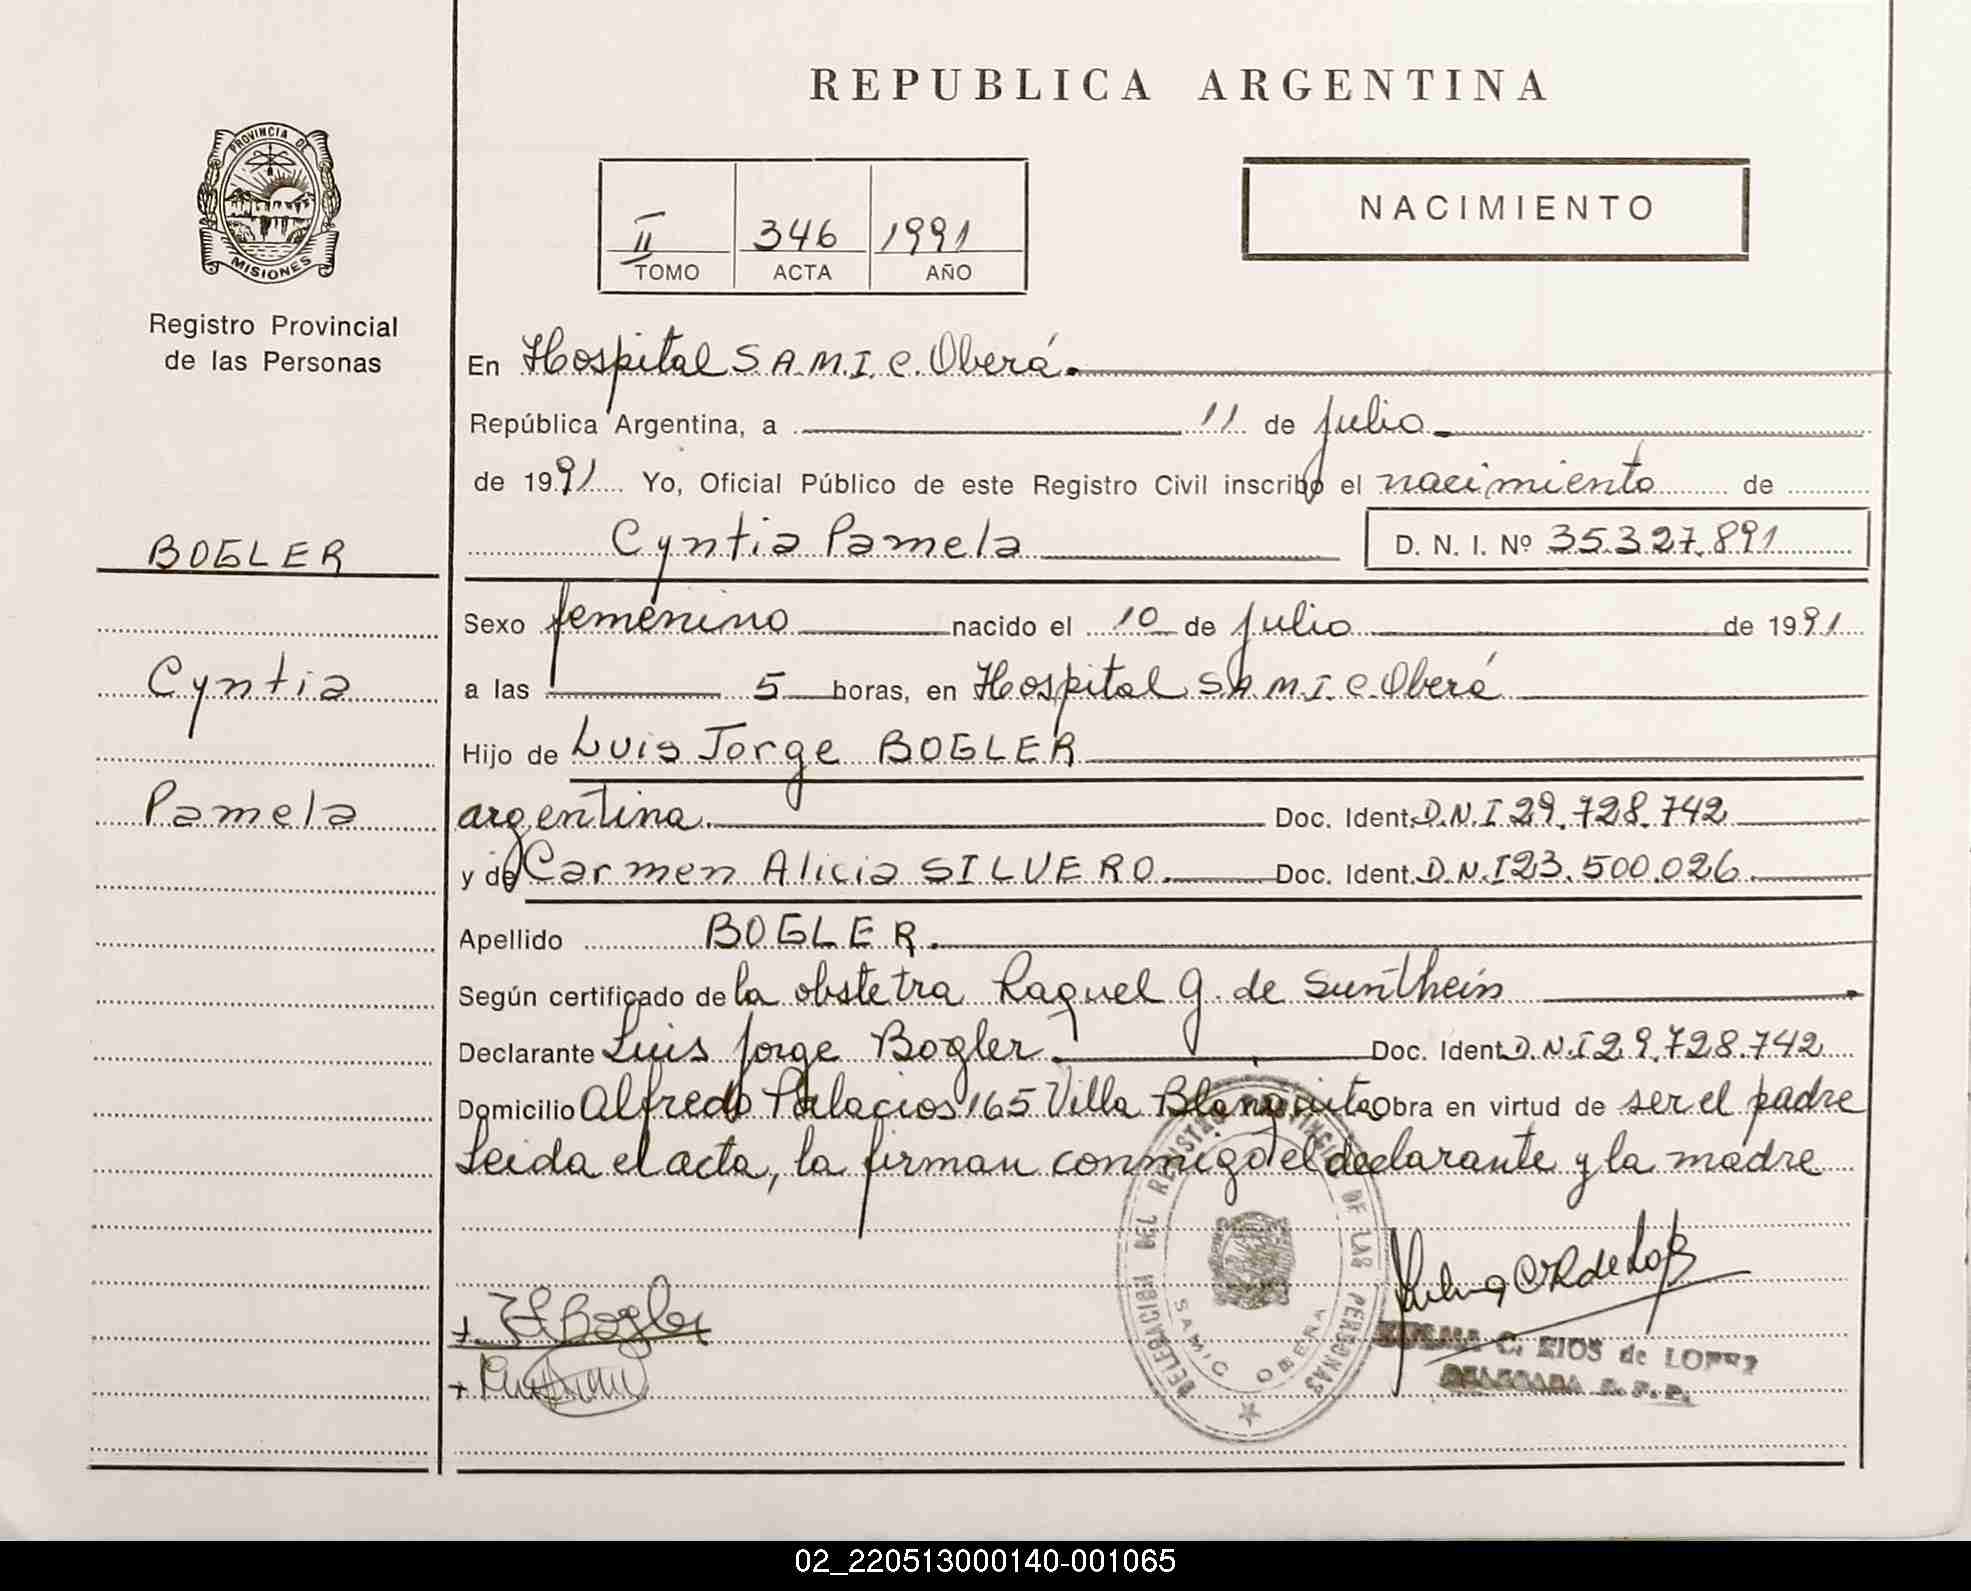 REPUBLICA ARGENTINA
PROVINCIA DE
MISIONES
Registro Provincial
de las Personas
II 346 1991
TOMO ACTA AÑO
NACIMIENTO
En Hospital S.A.M.I.C. Oberá.
República Argentina, a 11 de julio
de 1991 Yo, Oficial Público de este Registro Civil inscribo el nacimiento de
Cyntia Pamela D. N. I. Nº 35.327.891
BOGLER
Cyntia
Pamela
Sexo femenino nacido el 10 de julio de 1991
a las 5 horas, en Hospital S.A.M.I.C. Oberá
Hijo de Luis Jorge BOGLER
argentina. Doc. Ident. D.N.I 29.728.742
y de Carmen Alicia SILVERO. Doc. Ident. D.N.I 23.500.026
Apellido BOGLER.
Según certificado de la obstetra Raquel G. de Sunthein
Declarante Luis Jorge Bogler. Doc. Ident. D.N.I 29.728.742
Domicilio Alfredo Palacios 165 Villa Blanquita Obra en virtud de ser el padre
Leida el acta, la firman conmigo el declarante y la madre
DELEGACION DEL REGISTRO PROVINCIAL DE LAS PERSONAS
SAMIC OBERA
Bogler
C. RIOS de LOPEZ
DELEGADA R. P. P.
02_220513000140-001065